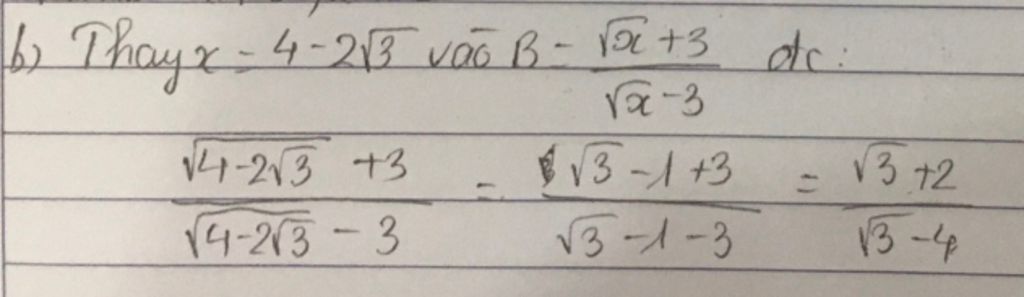 b) Thay x = 4 - 2√3 vào B = (√x + 3)/(√x - 3) đc:
(√(4-2√3) + 3)/(√(4-2√3) - 3) = (√3 - 1 + 3)/(√3 - 1 - 3) = (√3 + 2)/(√3 - 4)